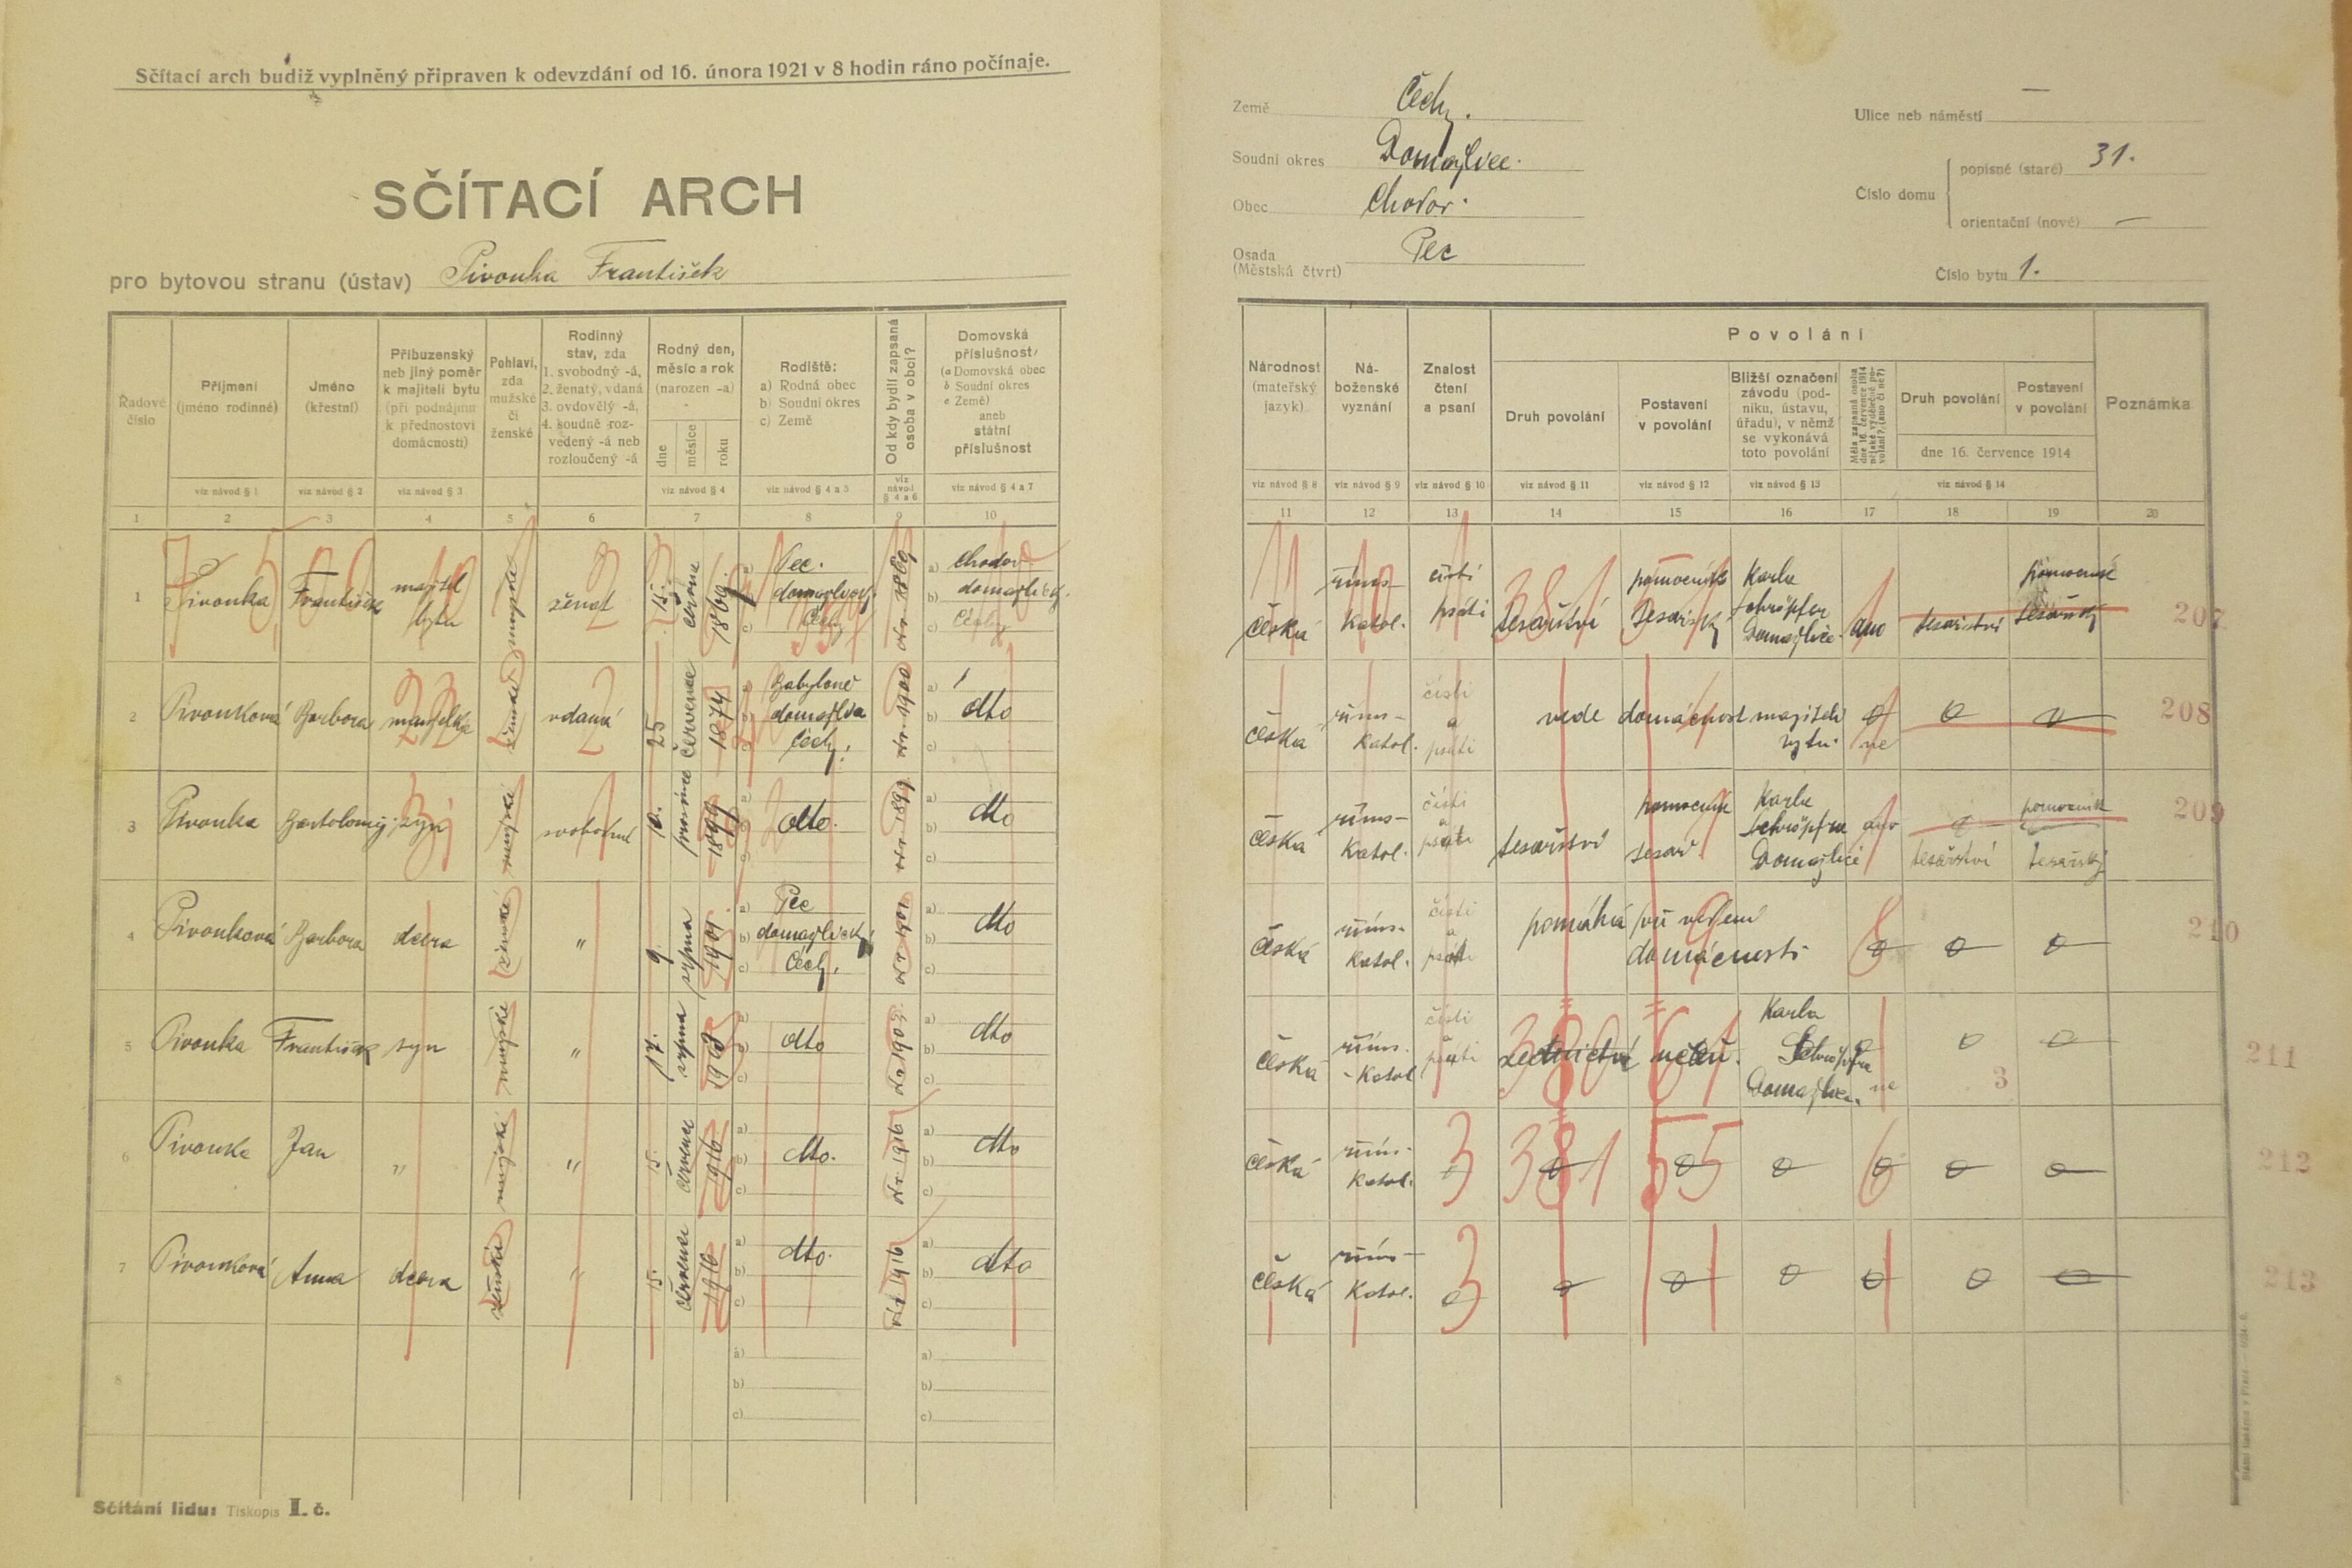 Sčítací arch budiž vyplněný připraven k odevzdání od 16. února 1921 v 8 hodin ráno počínaje.
SČÍTACÍ ARCH
pro bytovou stranu (ústav) Pivonka František
Země Čechy.
Soudní okres Domažlice.
Obec Chodov.
Osada
(Městská čtvrť) Pec
Ulice neb náměstí —
Číslo domu
popisné (staré) 31.
orientační (nové) —
Číslo bytu 1.
Řadové
číslo
Příjmení
(jméno rodinné)
Jméno
(křestní)
Příbuzenský
neb jiný poměr
k majiteli bytu
(při podnájmu
k přednostovi
domácnosti)
Pohlaví,
zda
mužské
či
ženské
Rodinný
stav, zda
1. svobodný -á,
2. ženatý, vdaná
3. ovdovělý -á,
4. soudně roz-
vedený -á neb
rozloučený -á
Rodný den,
měsíc a rok
(narozen -a)
dne
měsíce
roku
Rodiště:
a) Rodná obec
b) Soudní okres
c) Země
Od kdy bydlí zapsaná
osoba v obci?
Domovská
příslušnost
(a Domovská obec
b Soudní okres
c Země)
aneb
státní
příslušnost
viz návod § 1
viz návod § 2
viz návod § 3
viz návod § 4
viz návod § 4 a 5
viz
návod
§ 4 a 6
viz návod § 4 a 7
1 2 3 4 5 6 7 8 9 10
Národnost
(mateřský
jazyk)
Ná-
boženské
vyznání
Znalost
čtení
a psaní
Povolání
Druh povolání
Postavení
v povolání
Bližší označení
závodu (pod-
niku, ústavu,
úřadu), v němž
se vykonává
toto povolání
Měla zapsaná osoba
dne 16. července 1914
nějaké výdělečné po-
volání? (ano či ne?)
Druh povolání
Postavení
v povolání
dne 16. července 1914
Poznámka
viz návod § 8
viz návod § 9
viz návod § 10
viz návod § 11
viz návod § 12
viz návod § 13
viz návod § 14
11 12 13 14 15 16 17 18 19 20
1 Pivonka František majitel bytu mužské ženat 15. června 1869
a) Pec.
b) domažlický
c) Čechy
od r. 1869
a) Chodov
b) domažlický.
c) Čechy
česká říms- katol. čísti psáti tesařství pomocník tesařský Karla Schröpfer Domažlice. ano tesařství pomocník tesařský 207
2 Pivonková Barbora manželka ženské vdaná 25 července 1874
a) Babyloně
b) domažlice
c) Čechy.
od r. 1900
a) b) dto c)
česká říms- katol. čísti a psáti vede domácnost majiteli bytu. ne 208
3 Pivonka Bartoloměj syn mužské svobodný 10. 1899
a) b) dto. c)
od r. 1899
a) b) dto c)
česká říms- katol. čísti a psáti tesařství pomocník tesař. Karla Schröpfra Domažlice ano tesařství pomocník tesařský 209
4 Pivonková Barbora dcera ženské " 9. srpna 1901
a) Pec
b) domažlický
c) Čechy.
od r. 1901
a) b) dto c)
česká říms- katol. čísti a psáti pomáhá při vedení domácnosti 210
5 Pivonka František syn mužské " 17. srpna
a) b) dto c)
a) b) dto c)
česká říms. - katol čísti a psáti zednictví učeň. Karla Schröpfra Domažlice. ne 3 211
6 Pivonka Jan " mužské " 15. července 1916
a) b) dto. c)
od r. 1916
a) b) dto c)
česká říms- katol. 3 381 55 6 212
7 Pivonková Anna dcera ženské " 15. července 1916
a) dto. b) c)
od r. 1916
a) b) dto c)
česká říms- katol. 3 213
8
a)
b)
c)
a)
b)
c)
Sčítání lidu: Tiskopis I. č.